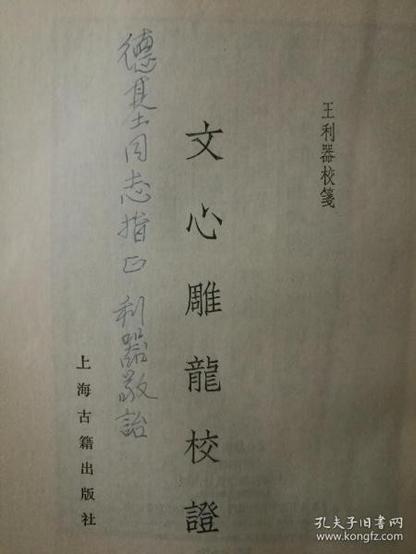 王利器校箋
文心雕龍校證
德基同志指正 利器敬詒
上海古籍出版社
孔夫子旧书网
www.kongfz.com